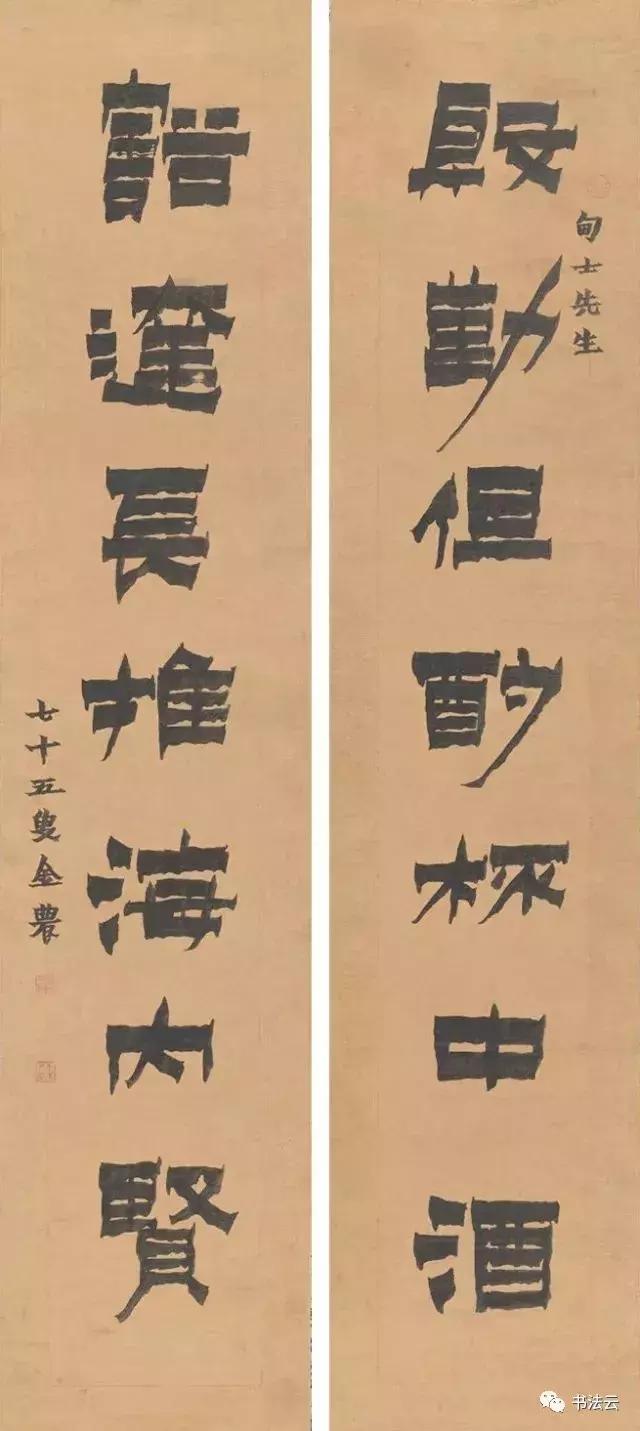 甸士先生
殷勤但酌杯中酒
豁達長推海内賢
七十五叟金農
书法云